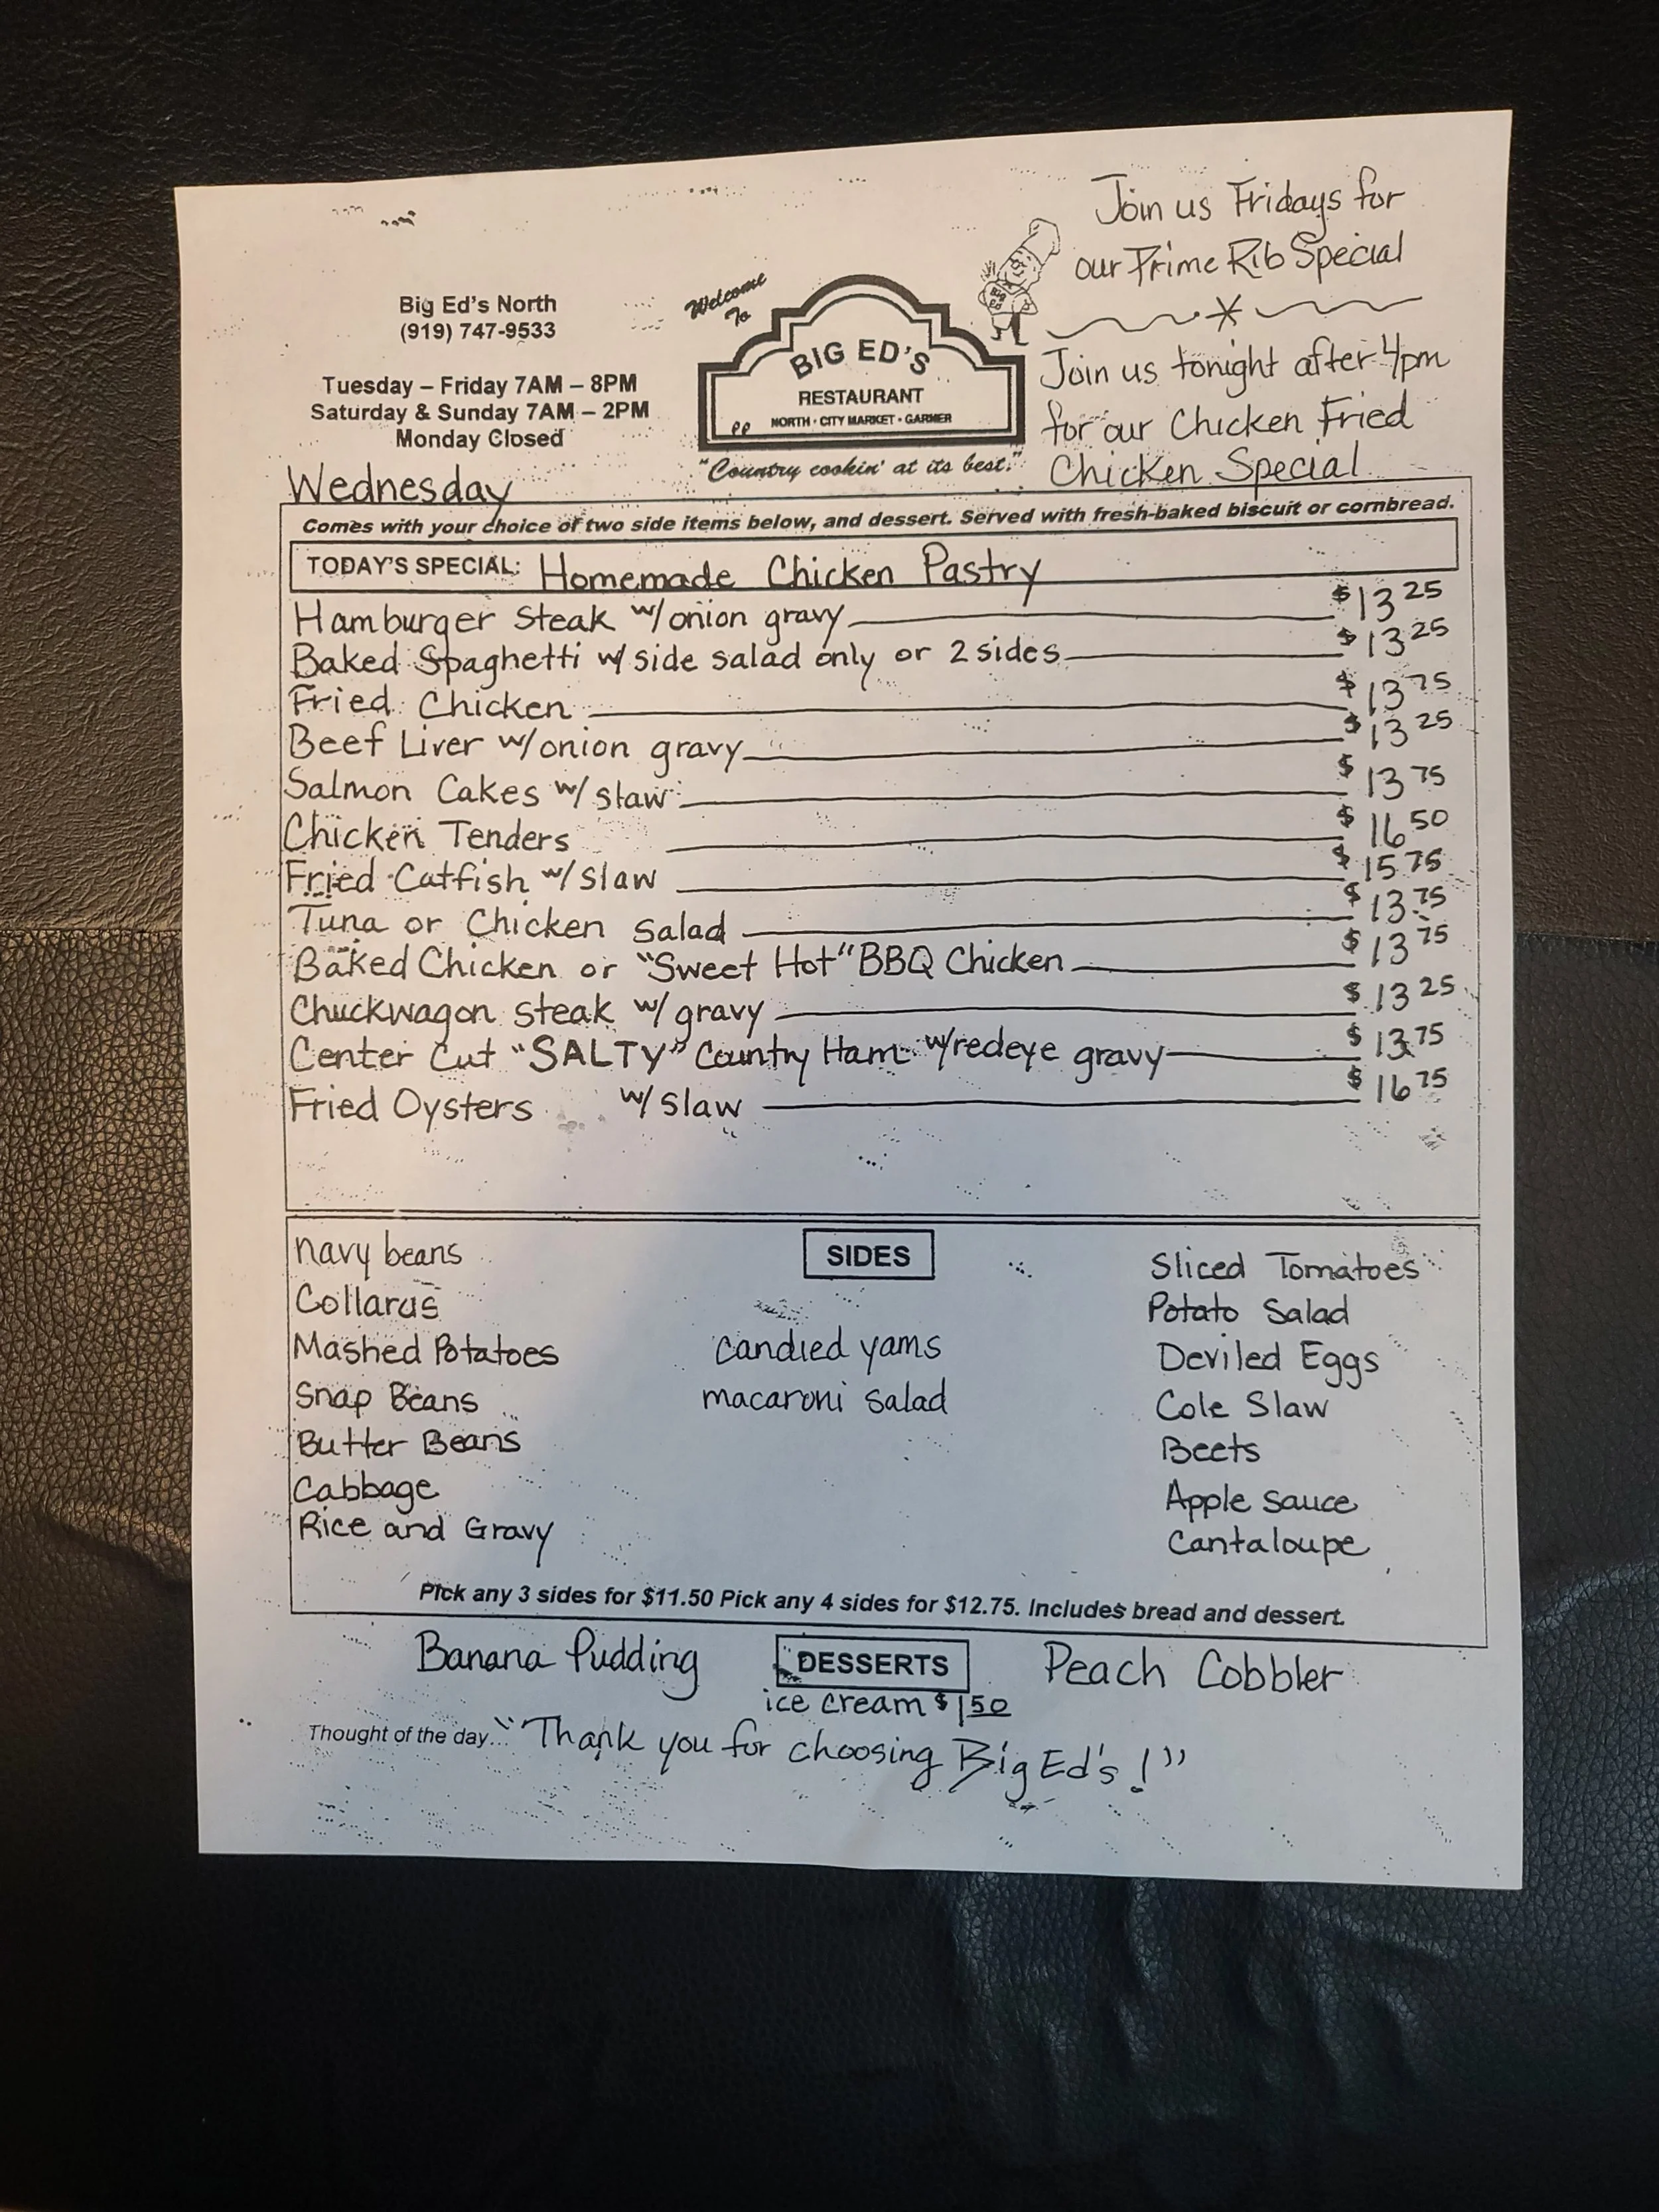 Join us Fridays for
our Prime Rib Special
Join us tonight after 4pm
for our Chicken Fried
Chicken Special
Big Ed's North
(919) 747-9533
Tuesday – Friday 7AM – 8PM
Saturday & Sunday 7AM – 2PM
Monday Closed
Welcome
To
BIG ED
BIG ED'S
RESTAURANT
NORTH · CITY MARKET · GARNER
"Country cookin' at its best."
Wednesday
Comes with your choice of two side items below, and dessert. Served with fresh-baked biscuit or cornbread.
TODAY'S SPECIAL: Homemade Chicken Pastry
Hamburger Steak w/onion gravy $13 25
Baked Spaghetti w/ side salad only or 2 sides $13 25
Fried Chicken $13 75
Beef Liver w/onion gravy $13 25
Salmon Cakes w/ slaw $13 75
Chicken Tenders $16 50
Fried Catfish w/ slaw $15 75
Tuna or Chicken Salad $13 75
Baked Chicken or "Sweet Hot" BBQ Chicken $13 75
Chuckwagon steak w/ gravy $13 25
Center Cut "SALTY" Country Ham w/redeye gravy $13 75
Fried Oysters w/ slaw $16 75
SIDES
navy beans
Collards
Mashed Potatoes
Snap Beans
Butter Beans
Cabbage
Rice and Gravy
candied yams
macaroni salad
Sliced Tomatoes
Potato Salad
Deviled Eggs
Cole Slaw
Beets
Apple sauce
Cantaloupe
Pick any 3 sides for $11.50 Pick any 4 sides for $12.75. Includes bread and dessert.
Banana Pudding DESSERTS Peach Cobbler
ice cream $1 50
Thought of the day... "Thank you for choosing Big Ed's!"